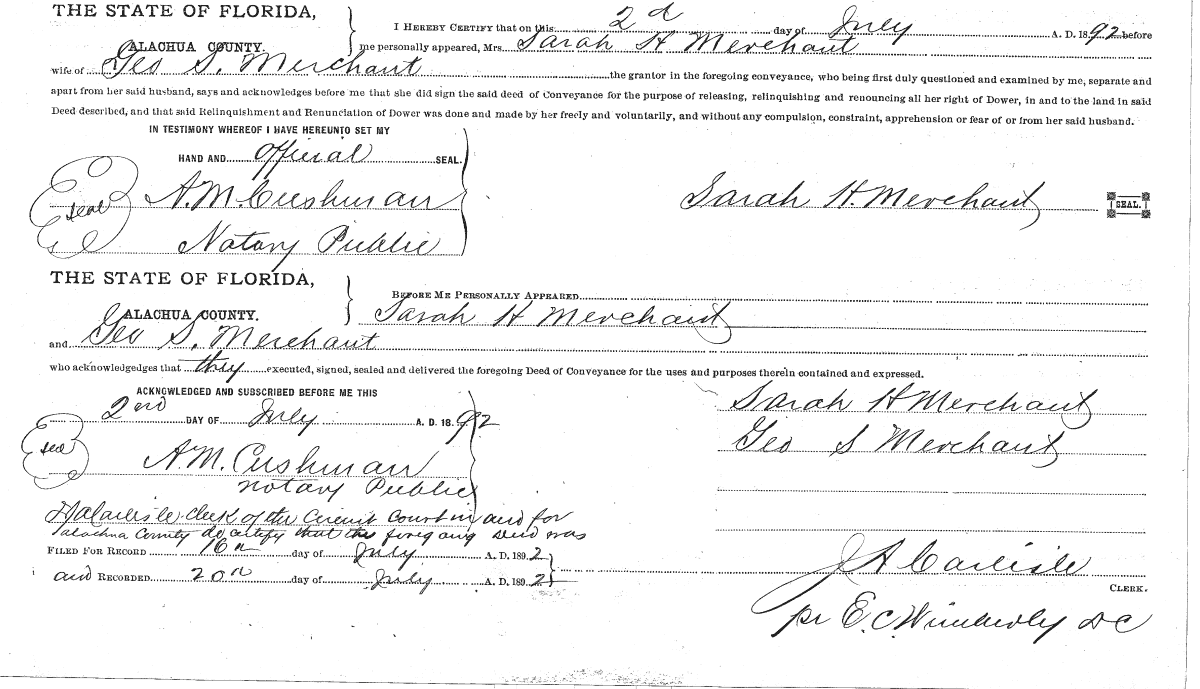 THE STATE OF FLORIDA,
ALACHUA COUNTY.
I HEREBY CERTIFY that on this 2d day of July A. D. 1892 before
me personally appeared, Mrs. Sarah H Merchant
wife of Geo S. Merchant the grantor in the foregoing conveyance, who being first duly questioned and examined by me, separate and
apart from her said husband, says and acknowledges before me that she did sign the said deed of Conveyance for the purpose of releasing, relinquishing and renouncing all her right of Dower, in and to the land in said
Deed described, and that said Relinquishment and Renunciation of Dower was done and made by her freely and voluntarily, and without any compulsion, constraint, apprehension or fear of or from her said husband.
IN TESTIMONY WHEREOF I HAVE HEREUNTO SET MY
HAND AND official SEAL.
seal A. M. Cushman
Notary Public
Sarah H. Merchant SEAL.
THE STATE OF FLORIDA,
ALACHUA COUNTY.
BEFORE ME PERSONALLY APPEARED
Sarah H Merchant
and Geo S. Merchant
who acknowledgedges that they executed, signed, sealed and delivered the foregoing Deed of Conveyance for the uses and purposes therein contained and expressed.
ACKNOWLEDGED AND SUBSCRIBED BEFORE ME THIS
2nd DAY OF July A. D. 1892
seal A. M. Cushman
Notary Public
Sarah H Merchant
Geo S Merchant
J A Carlisle Clerk of the Circuit Court in and for
Alachua County do certify that the foregoing deed was
FILED FOR RECORD 16th day of July A. D. 1892
and RECORDED 20th day of July A. D. 1892
J A Carlisle
CLERK.
pr E. C. Wimberly DC